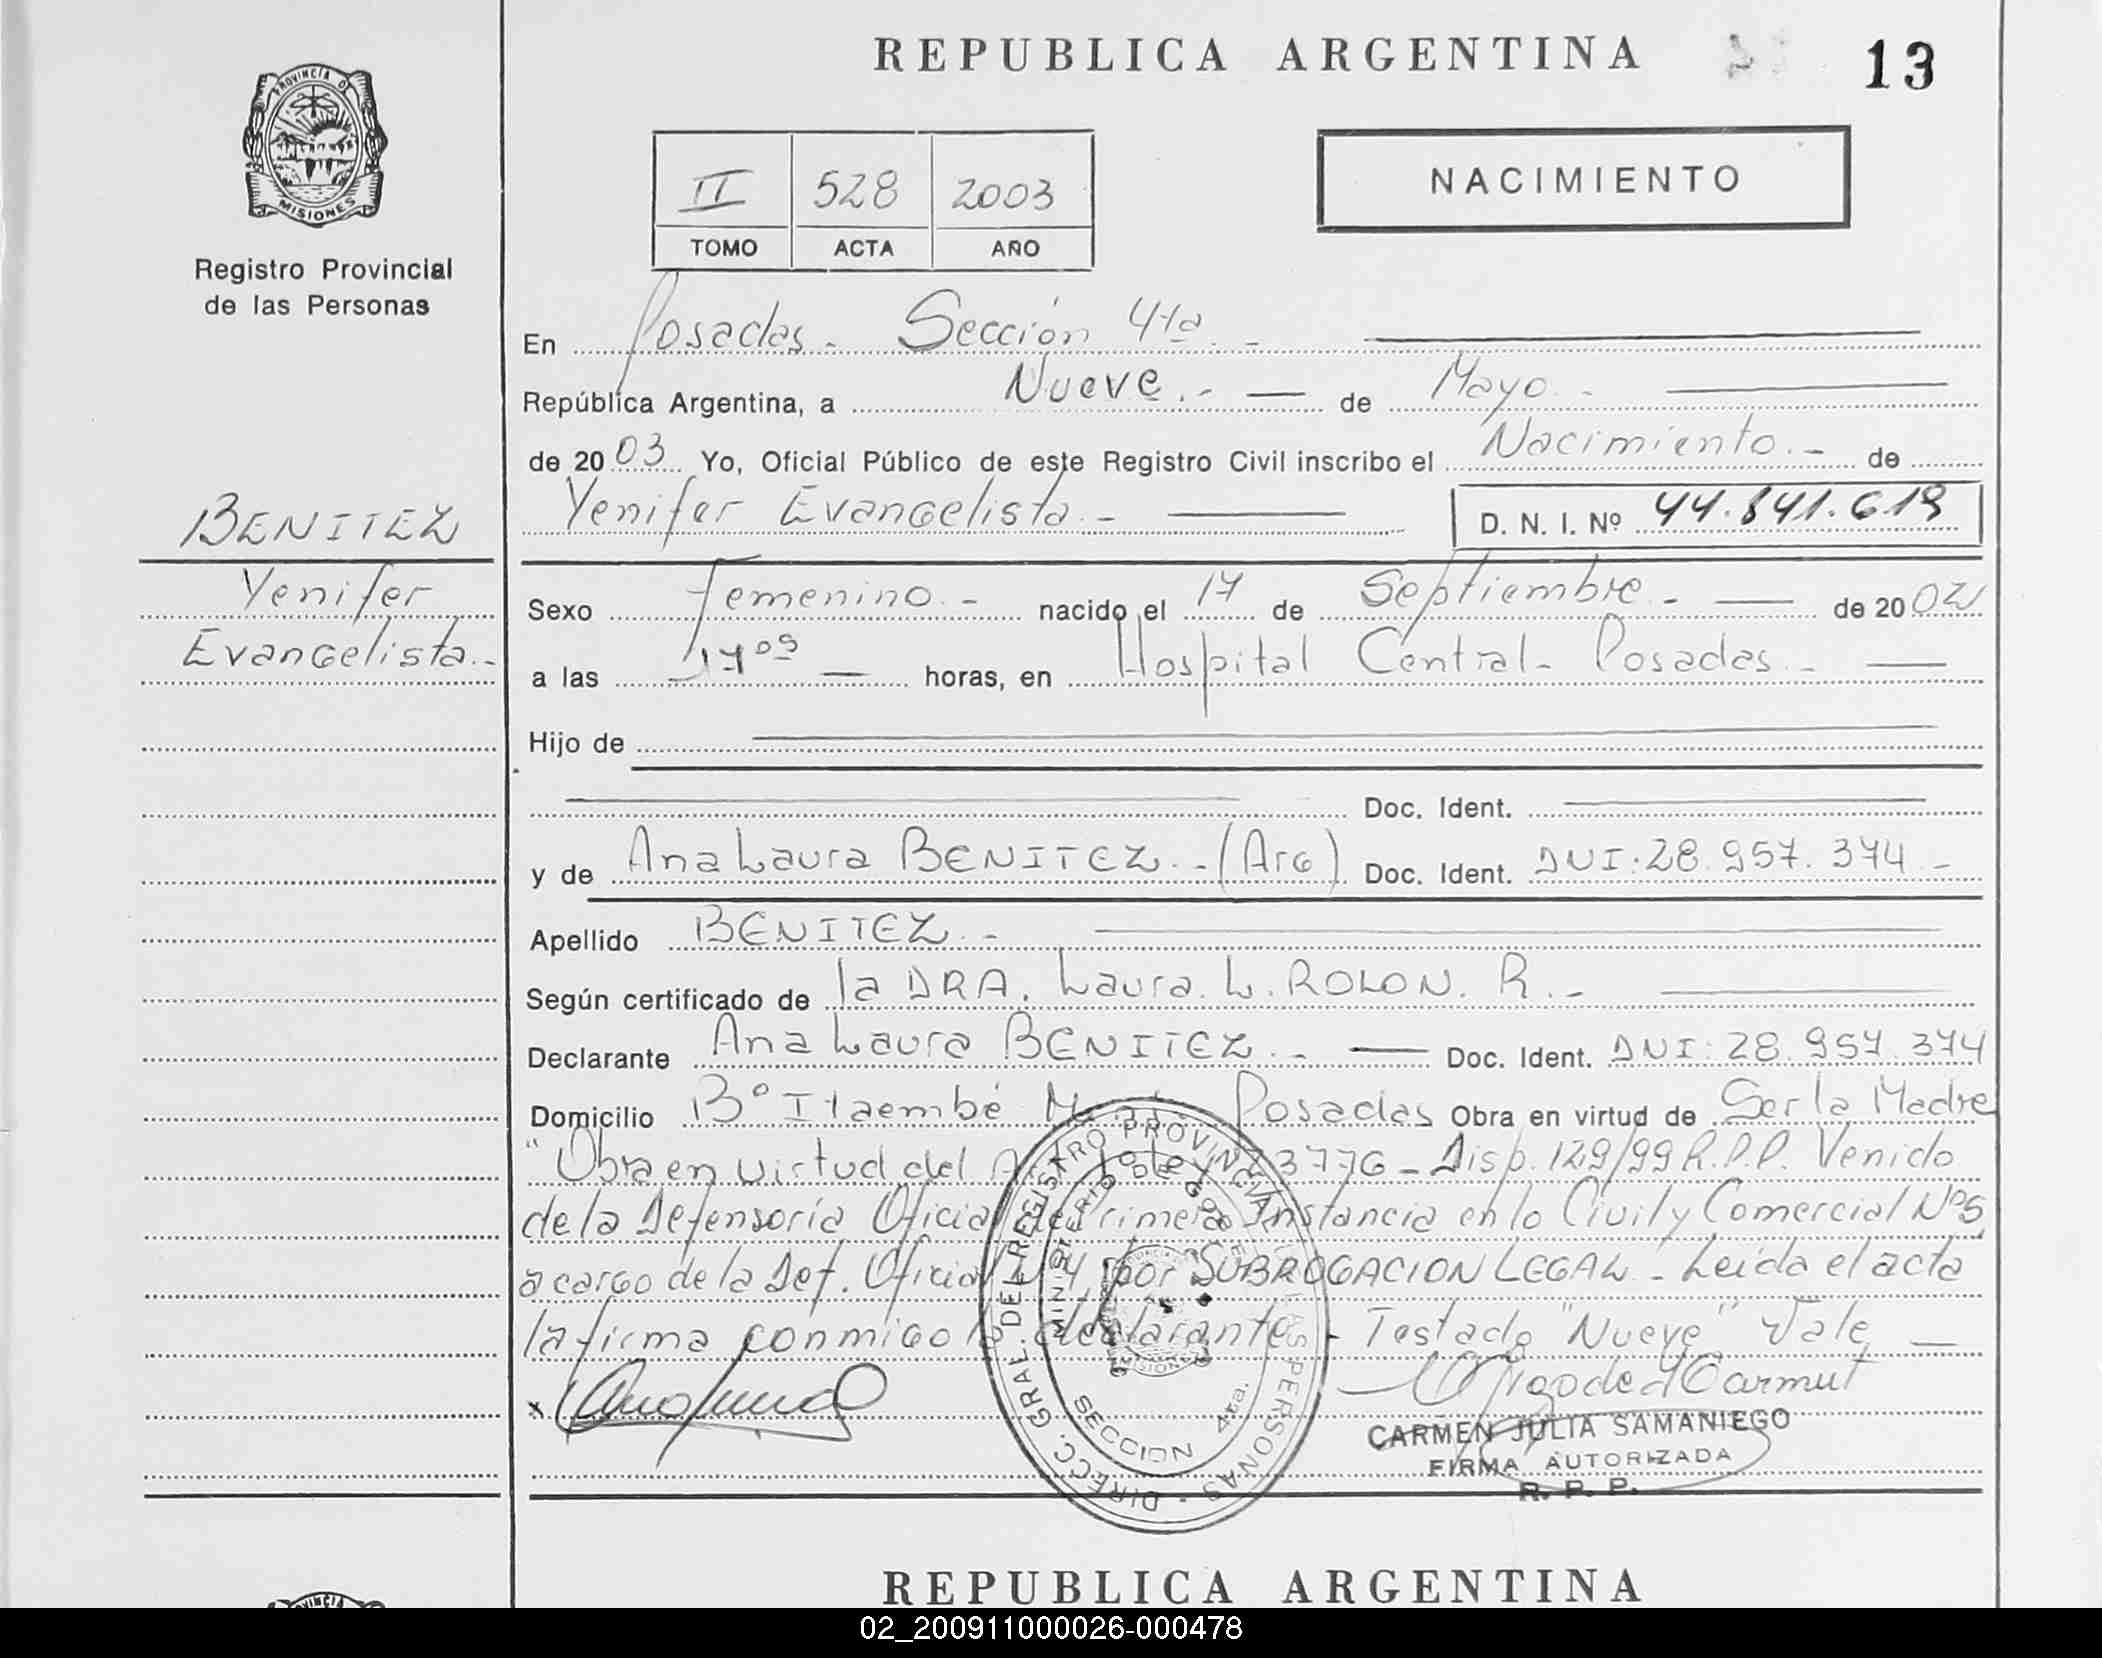 REPUBLICA ARGENTINA
13
PROVINCIA DE
MISIONES
Registro Provincial
de las Personas
II 528 2003
TOMO ACTA AÑO
NACIMIENTO
En Posadas.- Sección 4ta.-
República Argentina, a Nueve.- de Mayo.-
de 2003 Yo, Oficial Público de este Registro Civil inscribo el Nacimiento.- de
Yenifer Evangelista.-
D. N. I. Nº 44.841.619
BENITEZ
Yenifer
Evangelista.-
Sexo Femenino.- nacido el 17 de Septiembre.- de 2002
a las horas, en Hospital Central- Posadas.-
Hijo de
Doc. Ident.
y de Ana Laura BENITEZ.-(Arg) Doc. Ident. DNI:28.957.374.-
Apellido BENITEZ.-
Según certificado de la DRA. Laura. L. ROLON. R.-
Declarante Ana Laura BENITEZ.- Doc. Ident. DNI:28.957.374
Domicilio Bº Itaembé Posadas Obra en virtud de Ser la Madre
"Obra en virtud del ley 23776- Disp. 129/99 R.P.P. Venido
de la Defensoría Oficial de Primera Instancia en lo Civil y Comercial Nº5
a cargo de la Def. Oficial Nº4, por SUBROGACION LEGAL- Leída el acta
la firma conmigo la declarante.- Testado "Nueve" Vale
DIRECC. GRAL. DEL REGISTRO PROVINCIAL DE LAS PERSONAS
MINISTERIO DE GOB
MISIONES
SECCION 4ta.
CARMEN JULIA SAMANIEGO
FIRMA AUTORIZADA
R. P. P.
REPUBLICA ARGENTINA
02_200911000026-000478